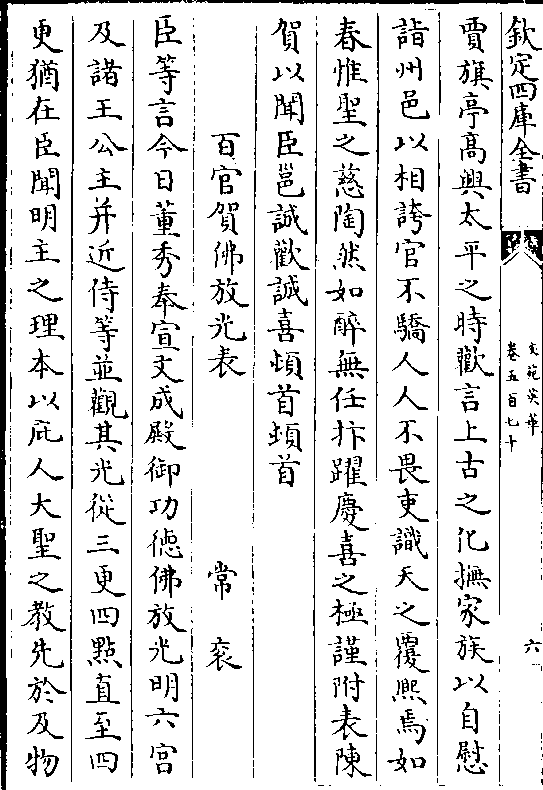 欽定四庫全書
文苑英華
卷五百七十
六
賈旗亭高興太平之時歡言上古之化撫家族以自慰
詣州邑以相誇官不驕人人不畏吏識天之覆熈焉如
春惟聖之慈陶然如醉無任抃躍慶喜之極謹附表陳
賀以聞臣邕誠歡誠喜頓首頓首
百官賀佛放光表　常衮
臣等言今日董秀奉宣文成殿御功徳佛放光明六宫
及諸王公主并近侍等並觀其光從三更四點直至四
更猶在臣聞明主之理本以庇人大聖之教先於及物